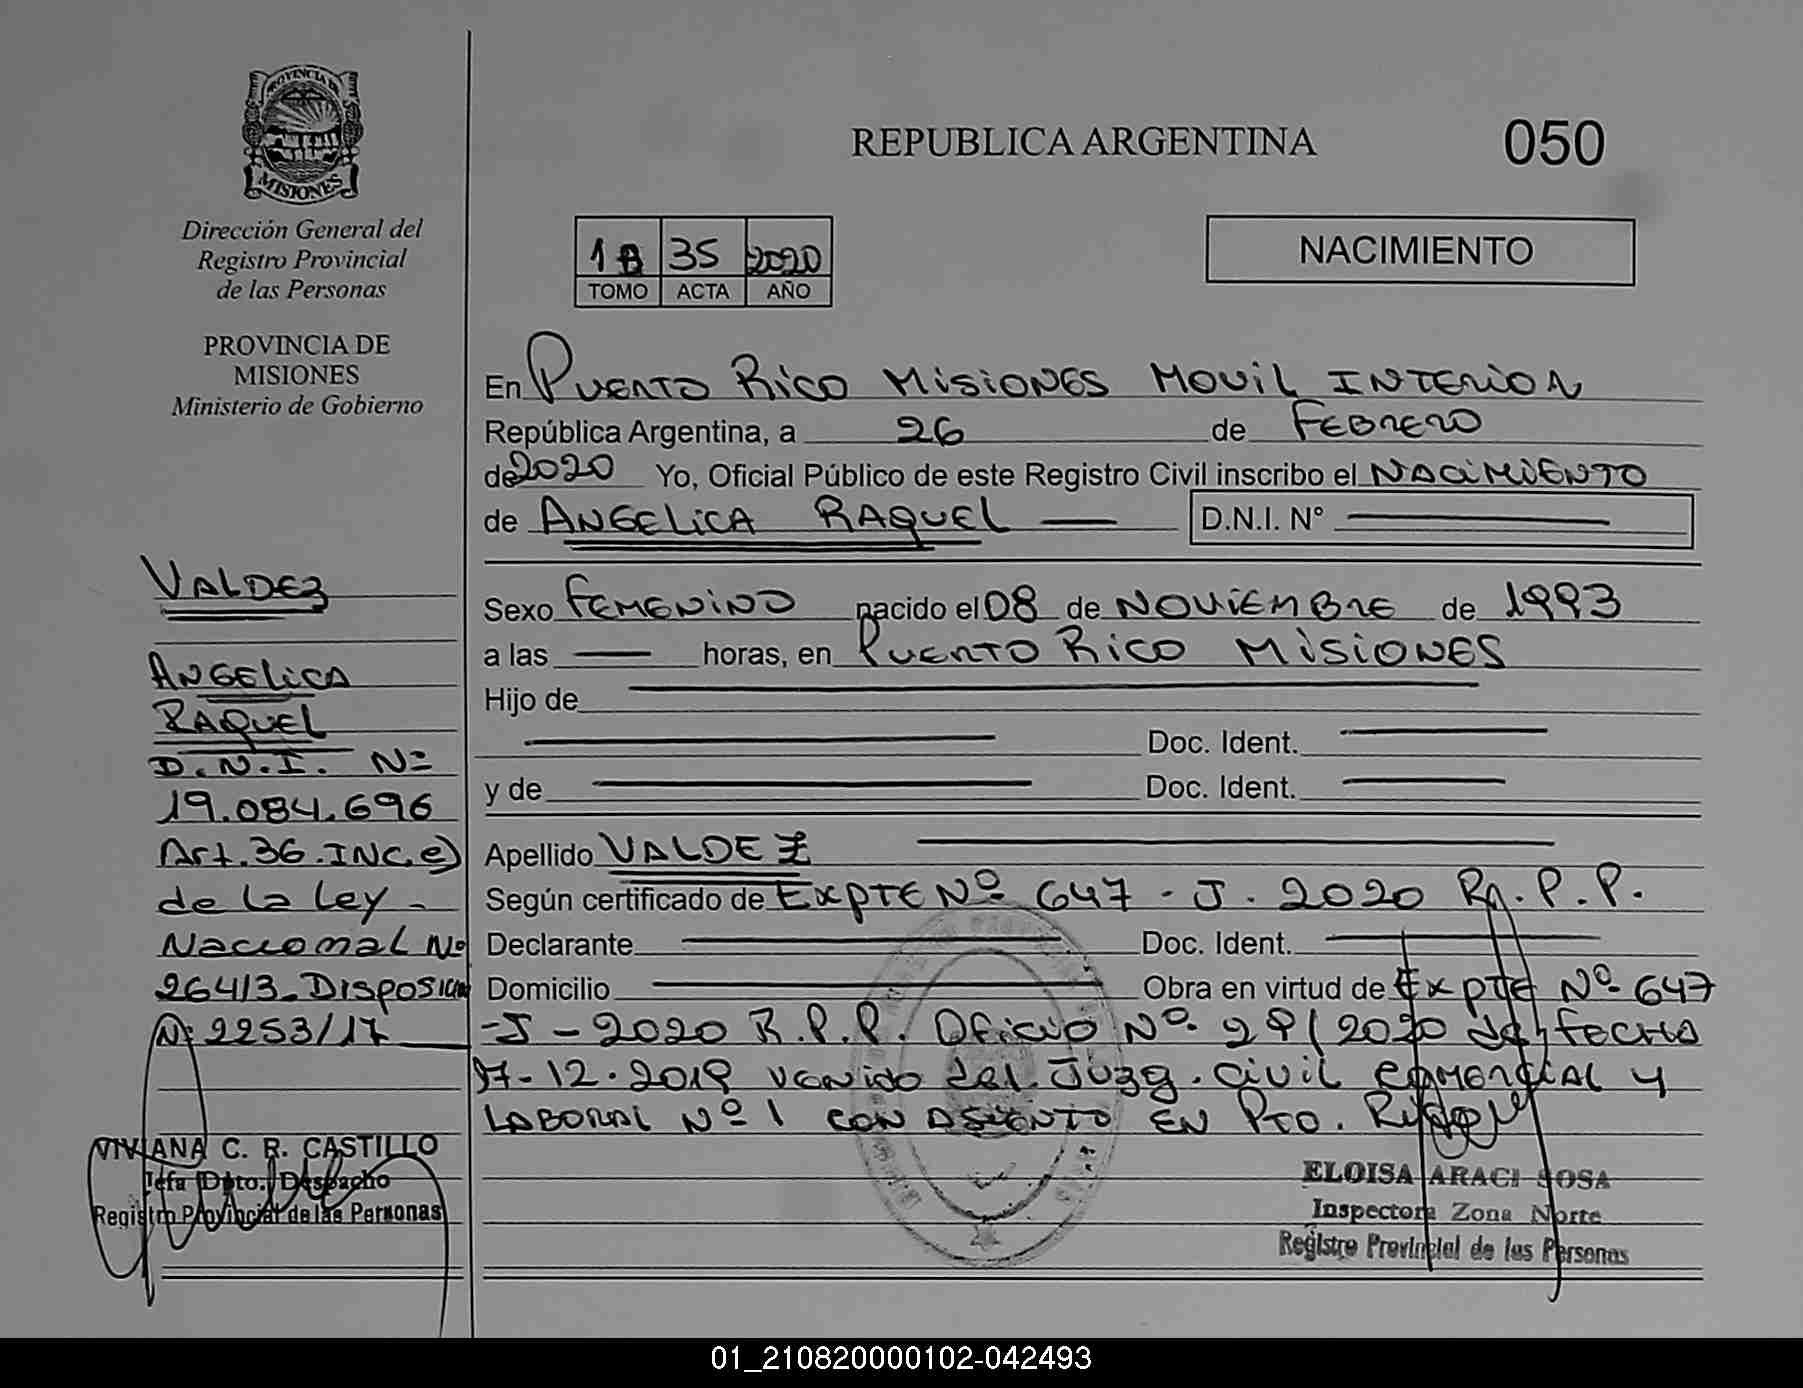 PROVINCIA DE
MISIONES
Dirección General del
Registro Provincial
de las Personas
PROVINCIA DE
MISIONES
Ministerio de Gobierno
VALDEZ
ANGELICA
RAQUEL
D.N.I. Nº
19.084.696
Art. 36. INC. e)
de la Ley -
Nacional Nº
26413. Disposición
Nº: 2253/17
VIVIANA C. R. CASTILLO
Jefa Dpto. Despacho
Registro Provincial de las Personas
REPUBLICA ARGENTINA
050
1B 35 2020
TOMO ACTA AÑO
NACIMIENTO
En PUERTO RICO MISIONES MOVIL INTERIOR
República Argentina, a 26 de FEBRERO
de 2020 Yo, Oficial Público de este Registro Civil inscribo el NACIMIENTO
de ANGELICA RAQUEL — D.N.I. N° —
Sexo FEMENINO nacido el 08 de NOVIEMBRE de 1993
a las — horas, en PUERTO RICO MISIONES
Hijo de —
— Doc. Ident. —
y de — Doc. Ident. —
Apellido VALDEZ —
Según certificado de EXPTE Nº 647 - J. 2020 R.P.P.
Declarante — Doc. Ident. —
Domicilio — Obra en virtud de EXPTE Nº 647
-J - 2020 R.P.P. OFICIO Nº 29/2020 de FECHA
17-12-2019 venido del Juzg. Civil COMERCIAL y
LABORAL Nº 1 CON ASIENTO EN PTO. RICO
ELOISA ARACI SOSA
Inspectora Zona Norte
Registro Provincial de las Personas
01_210820000102-042493